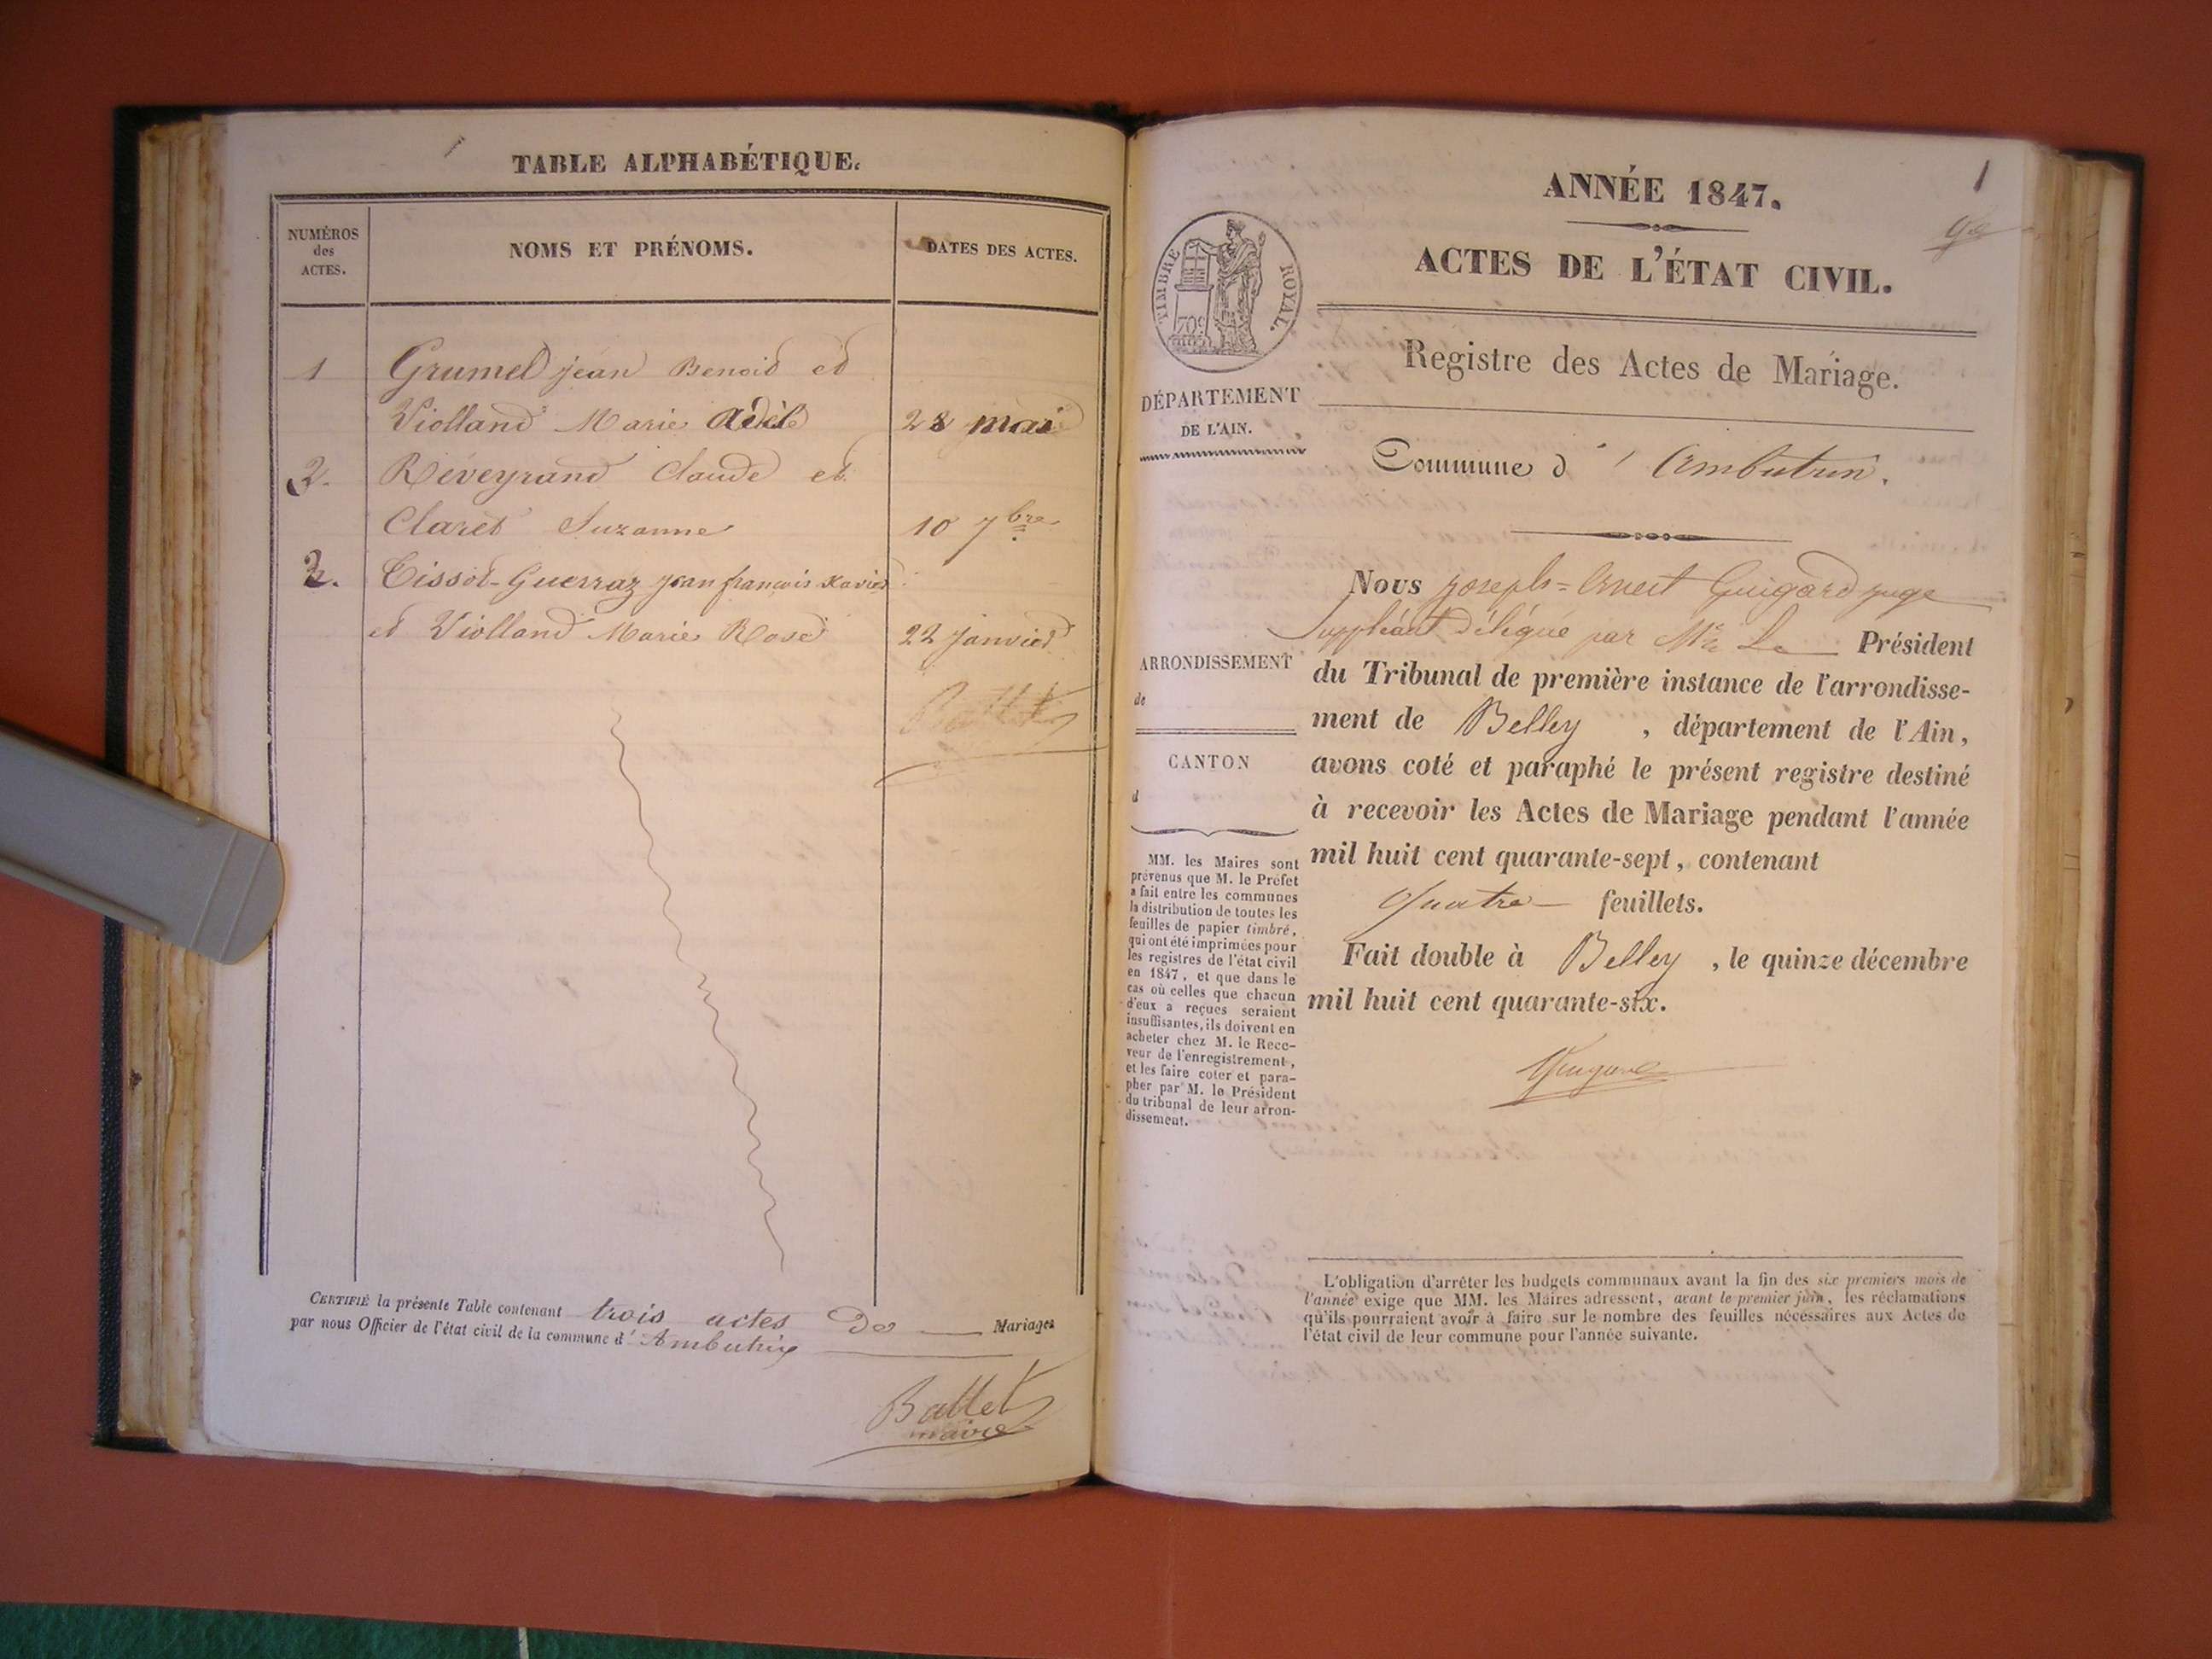 TABLE ALPHABÉTIQUE.
NUMÉROS
des
ACTES.
NOMS ET PRÉNOMS.
DATES DES ACTES.
1 Grumel jean Benoid et
Violland Marie adèle 28 mai
2. Réveyrand Claude et
Claret Suzanne 10 7bre
3. Tissot-Guerraz jean françois Xavier
et Violland Marie Rose 22 janvier
CERTIFIÉ la présente Table contenant trois actes de Mariages
par nous Officier de l'état civil de la commune d' Ambutrix
Ballet
maire
1
ANNÉE 1847.
ACTES DE L'ÉTAT CIVIL.
TIMBRE ROYAL.
70c
Registre des Actes de Mariage.
DÉPARTEMENT
DE L'AIN.
Commune d' Ambutrin.
Nous joseph=Ernest Guigard juge
Suppléant délégué par Mr Le Président
du Tribunal de première instance de l'arrondisse-
ment de Belley, département de l'Ain,
avons coté et paraphé le présent registre destiné
à recevoir les Actes de Mariage pendant l'année
mil huit cent quarante-sept, contenant
quatre feuillets.
Fait double à Belley, le quinze décembre
mil huit cent quarante-six.
ARRONDISSEMENT
de
CANTON
d
MM. les Maires sont
prévenus que M. le Préfet
a fait entre les communes
la distribution de toutes les
feuilles de papier timbré,
qui ont été imprimées pour
les registres de l'état civil
en 1847, et que dans le
cas où celles que chacun
d'eux a reçues seraient
insuffisantes, ils doivent en
acheter chez M. le Rece-
veur de l'enregistrement,
et les faire coter et para-
pher par M. le Président
du tribunal de leur arron-
dissement.
L'obligation d'arrêter les budgets communaux avant la fin des six premiers mois de
l'année exige que MM. les Maires adressent, avant le premier juin, les réclamations
qu'ils pourraient avoir à faire sur le nombre des feuilles nécessaires aux Actes de
l'état civil de leur commune pour l'année suivante.